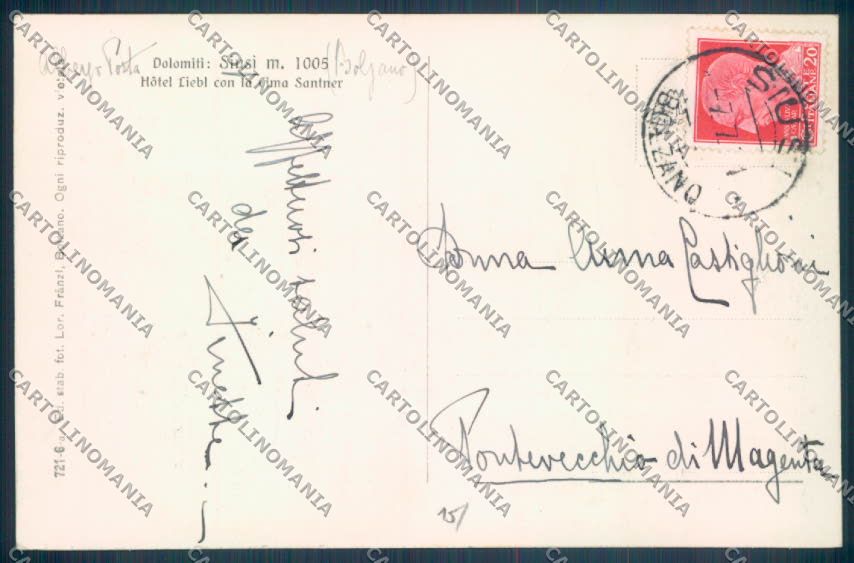 Albergo Posta
(Bolzano)
Dolomiti: Siusi m. 1005
Hôtel Liebl con la Cima Santner
Affettuosi saluti
da
721-6-a Ed. stab. fot. Lor. Fränzl, Bolzano. Ogni riproduz. viet.
SIUSI
BOLZANO
20
Donna Anna Castiglioni
Pontevecchio di Magenta
15/
CARTOLINOMANIA